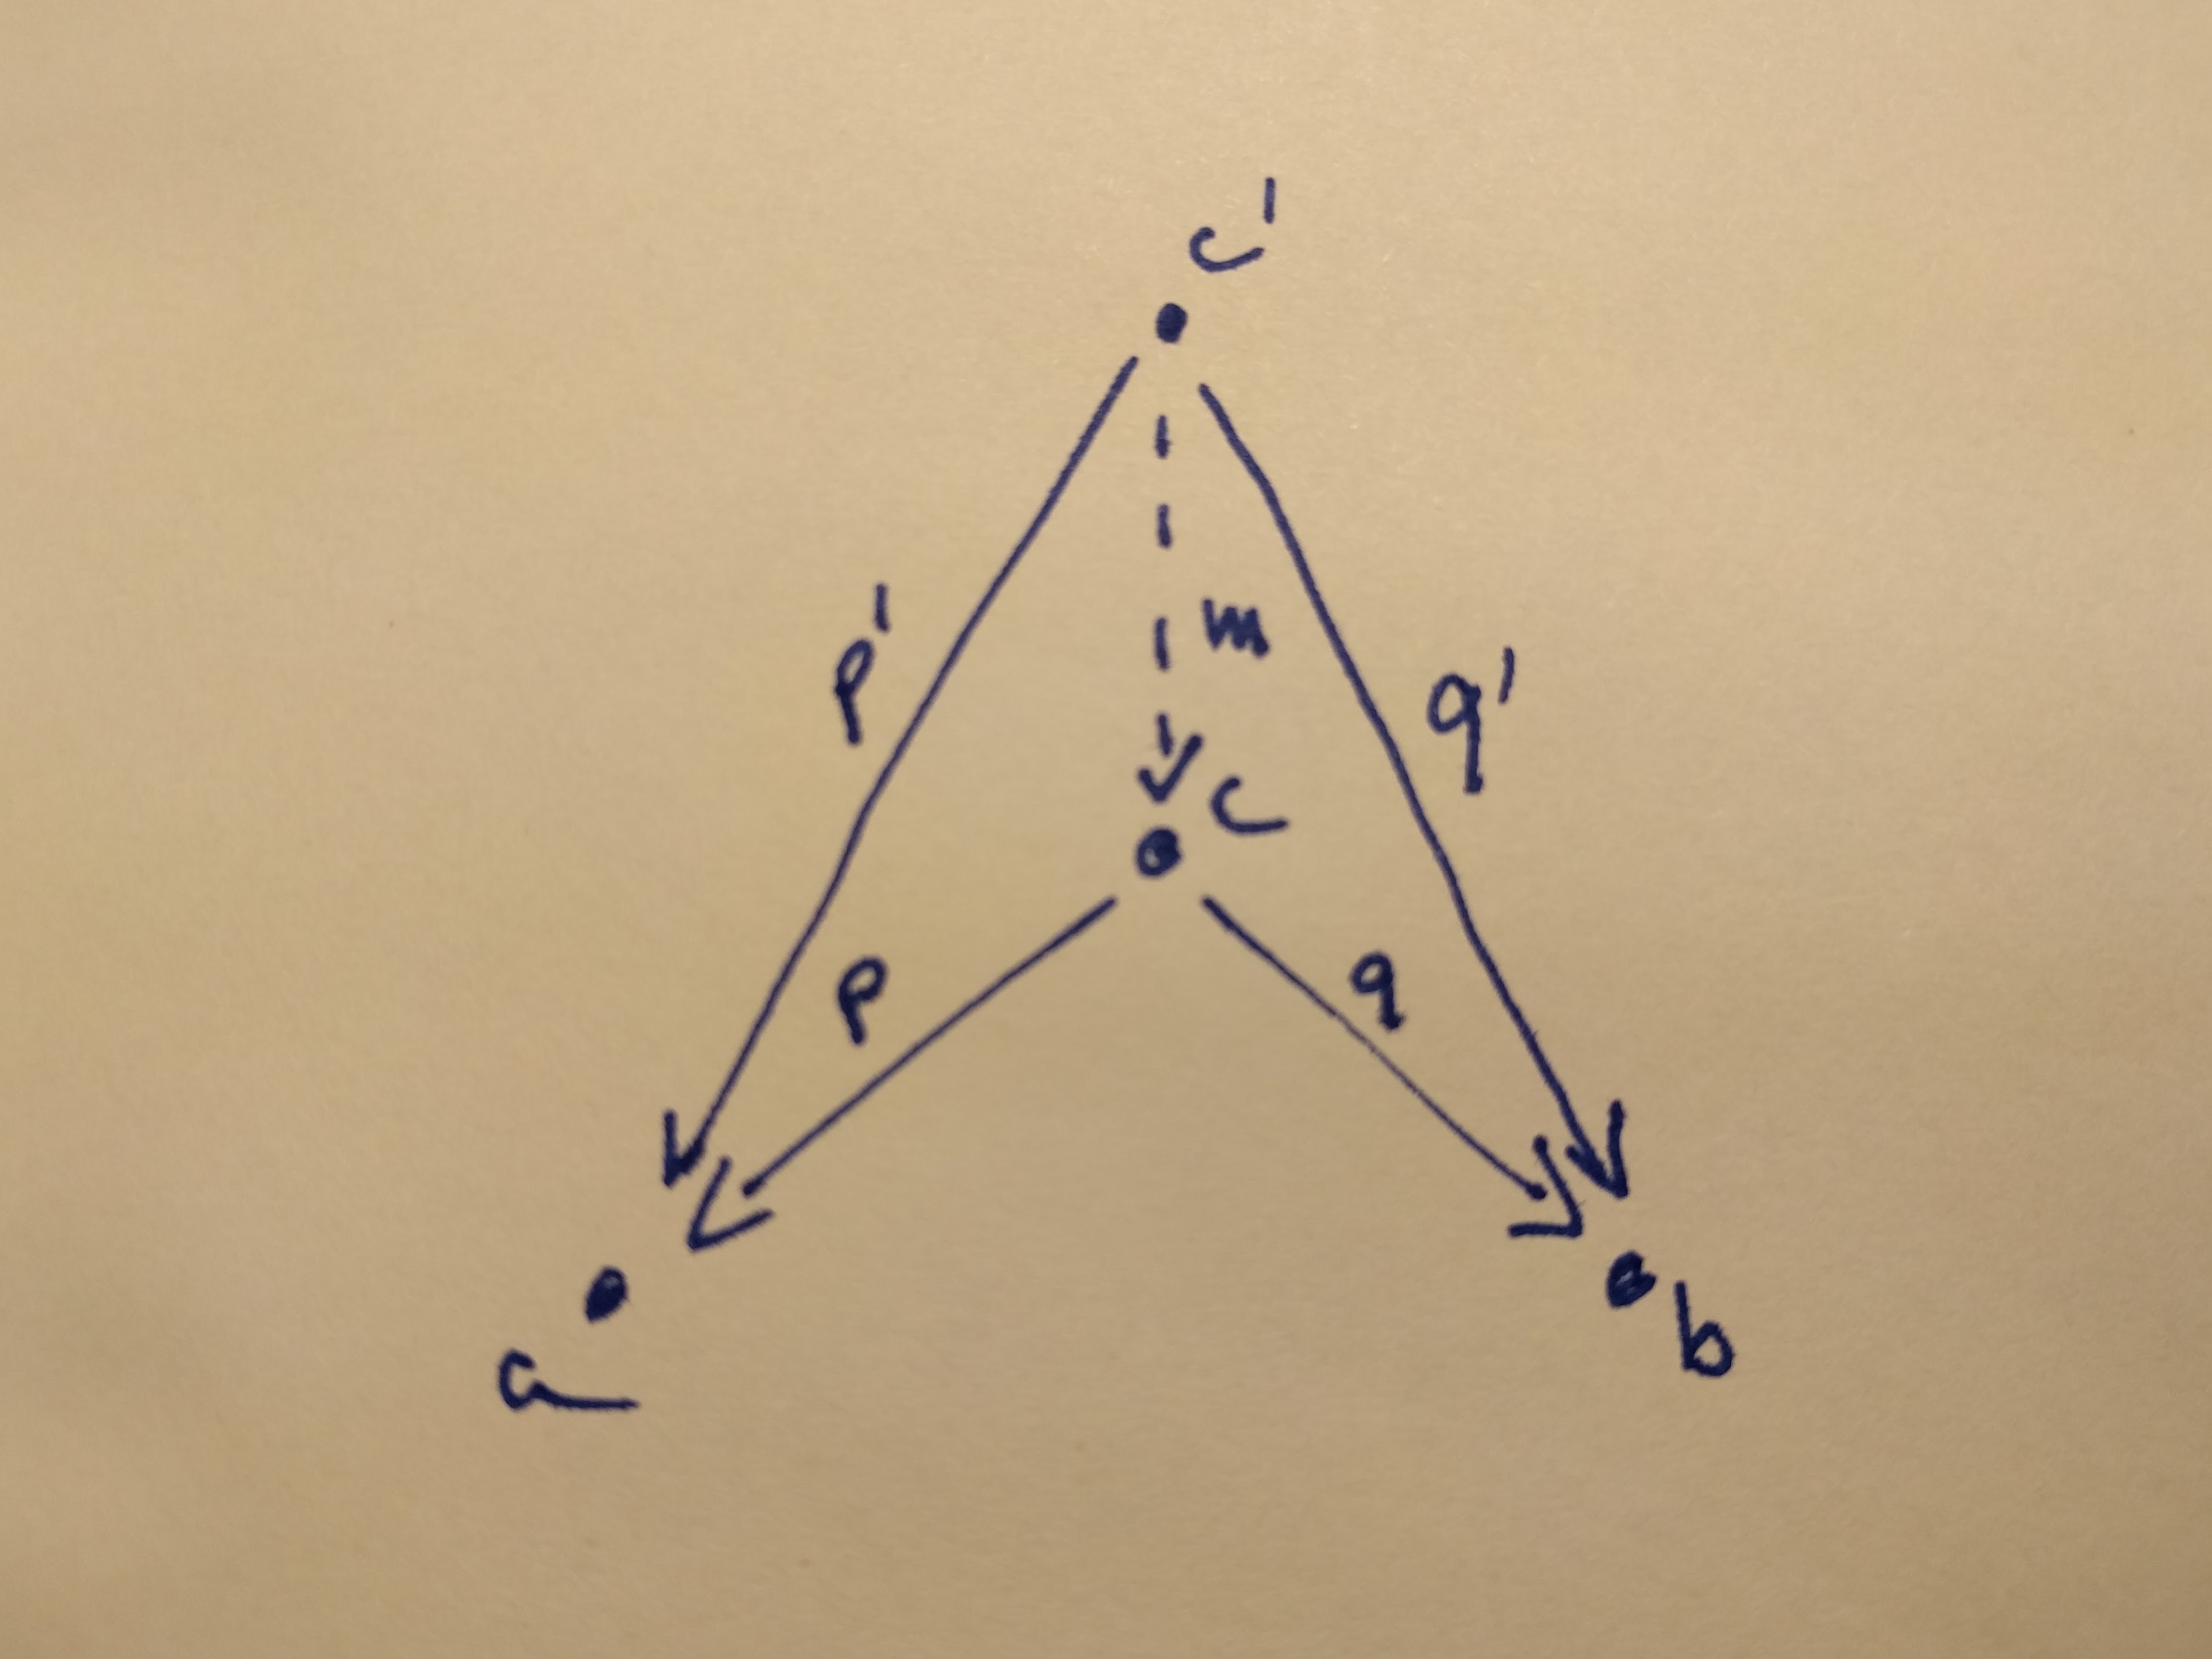 c'
p' m q'
c
p q
a b